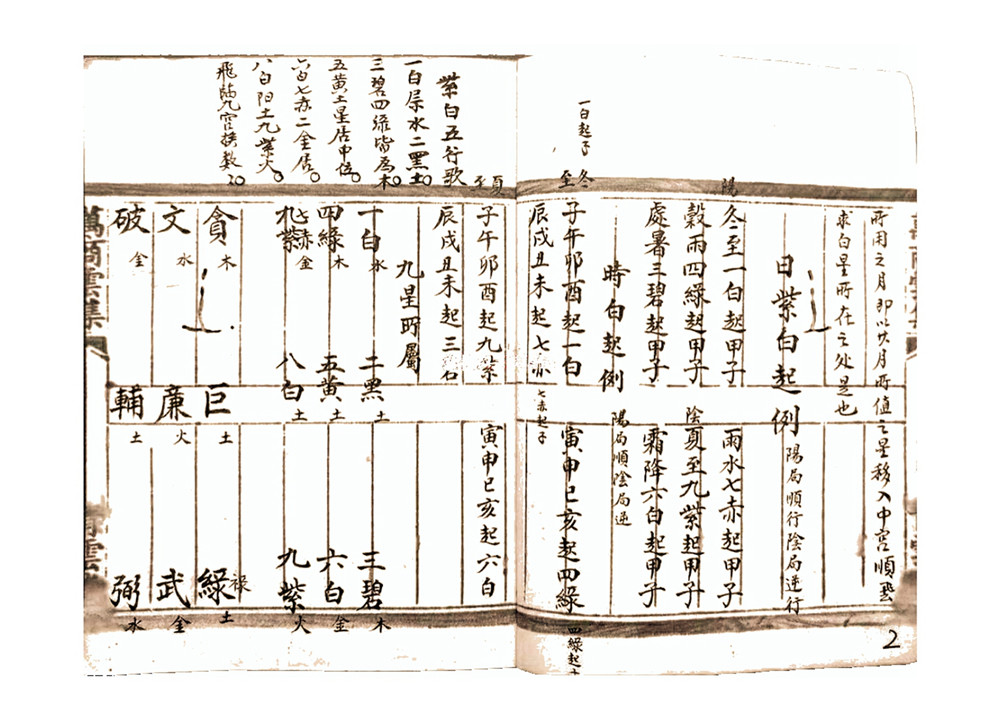 所用之月即以其月所值之星移入中宫順飛
求白星所在之处是也
日紫白起例 陽局順行陰局逆行
陽
冬至一白起甲子 雨水七赤起甲子
穀雨四綠起甲子 陰夏至九紫起甲子
處暑三碧起甲子 霜降六白起甲子
時白起例 陽局順陰局逆
冬至
一白起子
子午卯酉起一白 寅申巳亥起四綠
四綠起子
辰戌丑未起七赤 七赤起子
2
夏至
子午卯酉起九紫 寅申巳亥起六白
辰戌丑未起三召
九星所屬
一白水 二黑土 三碧木
四綠木 五黄土 六白金
七赤金 八白土 九紫火
九紫
貪木 巨土 綠禄土
文水 廉火 武金
破金 輔土 弼水
紫白五行歌
一白屬水二黑土
三碧四綠皆爲木
五黄土星居中位
六白七赤二金居
八白阳土九紫火
飛臨九宫接數
萬商雲集